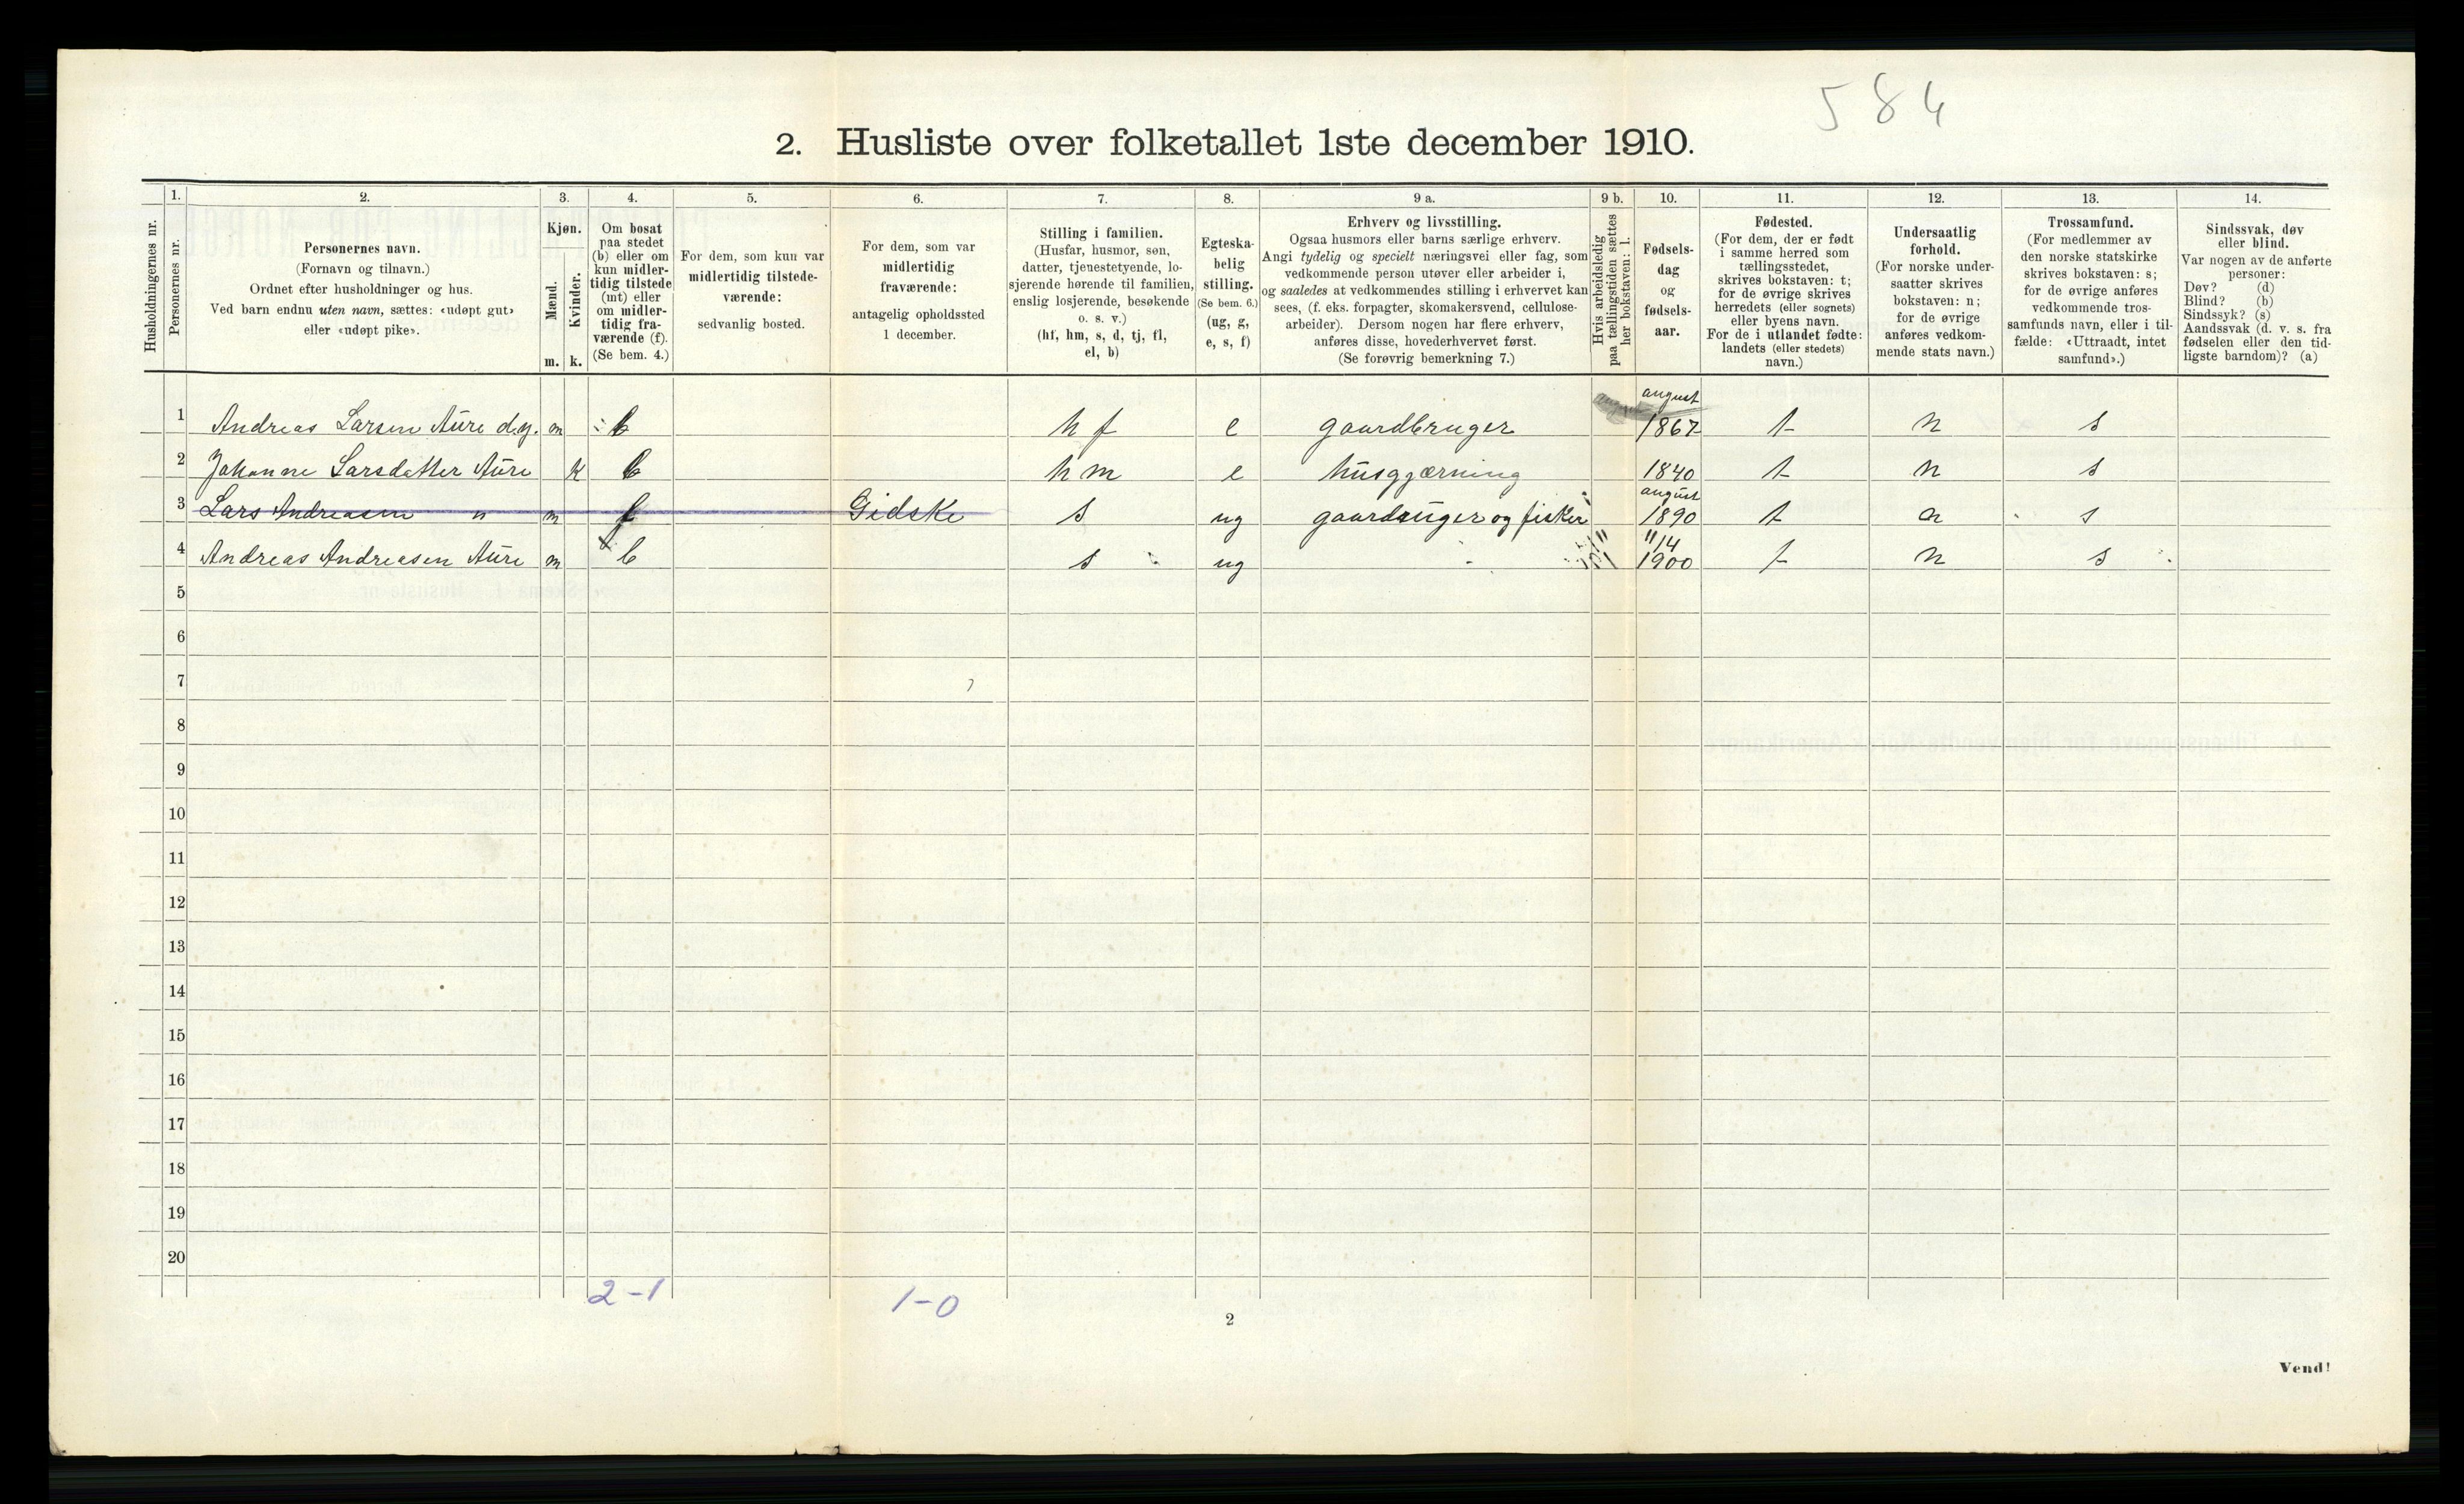 584
2. Husliste over folketallet 1ste december 1910.
Husholdningernes nr.
1.
Personernes nr.
2.
Personernes navn.
(Fornavn og tilnavn.)
Ordnet efter husholdninger og hus.
Ved barn endnu uten navn, sættes: «udøpt gut»
eller «udøpt pike».
3.
Kjøn.
Mænd.
m.
Kvinder.
k.
4.
Om bosat
paa stedet
(b) eller om
kun midler-
tidig tilstede
(mt) eller
om midler-
tidig fra-
værende (f).
(Se bem. 4.)
5.
For dem, som kun var
midlertidig tilstede-
værende:
sedvanlig bosted.
6.
For dem, som var
midlertidig
fraværende:
antagelig opholdssted
1 december.
7.
Stilling i familien.
(Husfar, husmor, søn,
datter, tjenestetyende, lo-
sjerende hørende til familien,
enslig losjerende, besøkende
o. s. v.)
(hf, hm, s, d, tj, fl,
el, b)
8.
Egteska-
belig
stilling.
(Se bem. 6.)
(ug, g,
e, s, f)
9 a.
Erhverv og livsstilling.
Ogsaa husmors eller barns særlige erhverv.
Angi tydelig og specielt næringsvei eller fag, som
vedkommende person utøver eller arbeider i,
og saaledes at vedkommendes stilling i erhvervet kan
sees, (f. eks. forpagter, skomakersvend, cellulose-
arbeider). Dersom nogen har flere erhverv,
anføres disse, hovederhvervet først.
(Se forøvrig bemerkning 7.)
9 b.
Hvis arbeidsledig
paa tællingstiden sættes
her bokstaven: l.
10.
Fødsels-
dag
og
fødsels-
aar.
11.
Fødested.
(For dem, der er født
i samme herred som
tællingsstedet,
skrives bokstaven: t;
for de øvrige skrives
herredets (eller sognets)
eller byens navn.
For de i utlandet fødte:
landets (eller stedets)
navn.)
12.
Undersaatlig
forhold.
(For norske under-
saatter skrives
bokstaven: n;
for de øvrige
anføres vedkom-
mende stats navn.)
13.
Trossamfund.
(For medlemmer av
den norske statskirke
skrives bokstaven: s;
for de øvrige anføres
vedkommende tros-
samfunds navn, eller i til-
fælde: «Uttraadt, intet
samfund».)
14.
Sindssvak, døv
eller blind.
Var nogen av de anførte
personer:
Døv? (d)
Blind? (b)
Sindssyk? (s)
Aandssvak (d. v. s. fra
fødselen eller den tid-
ligste barndom)? (a)
august
1 Andreas Larsen Aure d.y. m b h f e gaardbruger 1867 t n s
2 Johanne Larsdatter Aure K b h m e husgjærning 1840 t n s
august
3 Lars Andreasen " m f Gidske s ug gaardsuger og fisker 1890 t n s
11/4
4 Andreas Andreasen Aure m b s ug - 1900 t n s
5
6
7
8
9
10
11
12
13
14
15
16
17
18
19
20
2-1 1-0
2
Vend!